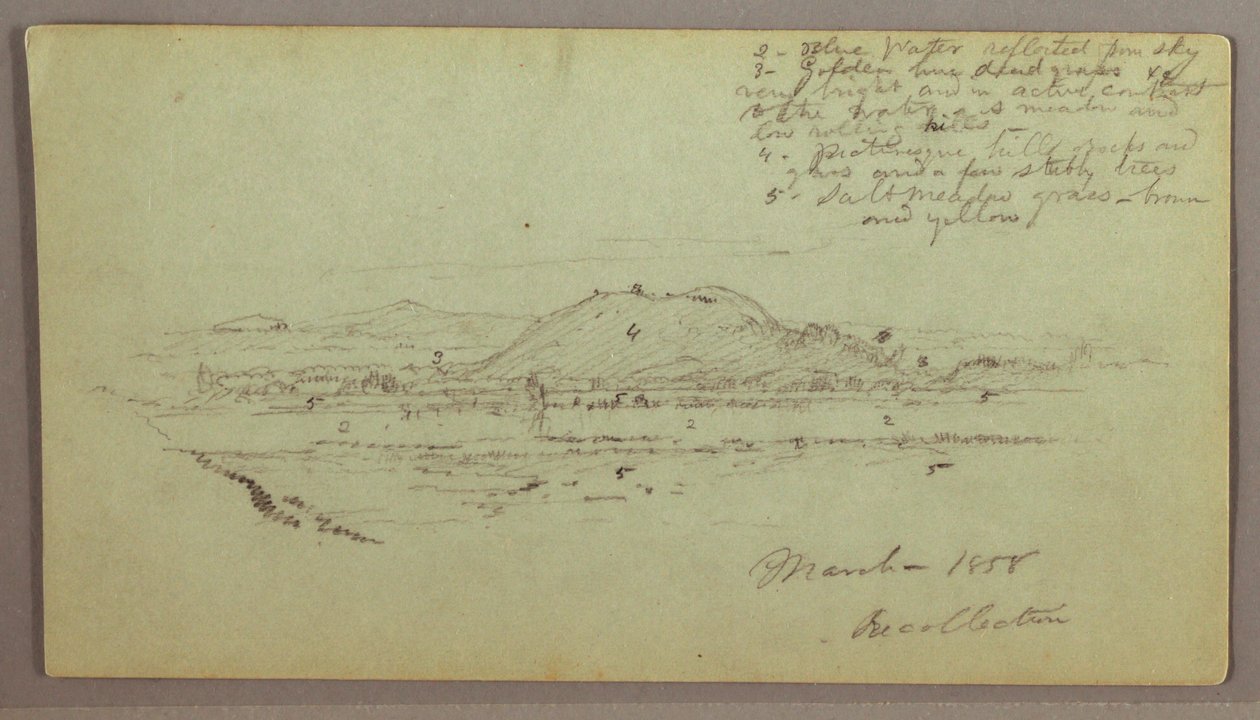 2 - Blue Water reflected from sky
3 - Golden hue dead grass &c
very bright and in active contrast
to the water, a S meadow and
low rolling hills
4 - Picturesque hills rocks and
grass and a few stubby trees
5 - Salt meadow grass - brown
and yellow
8
4
3
8
8
5
5 8
5
2
2
2
5
5
March - 1858
Recollection